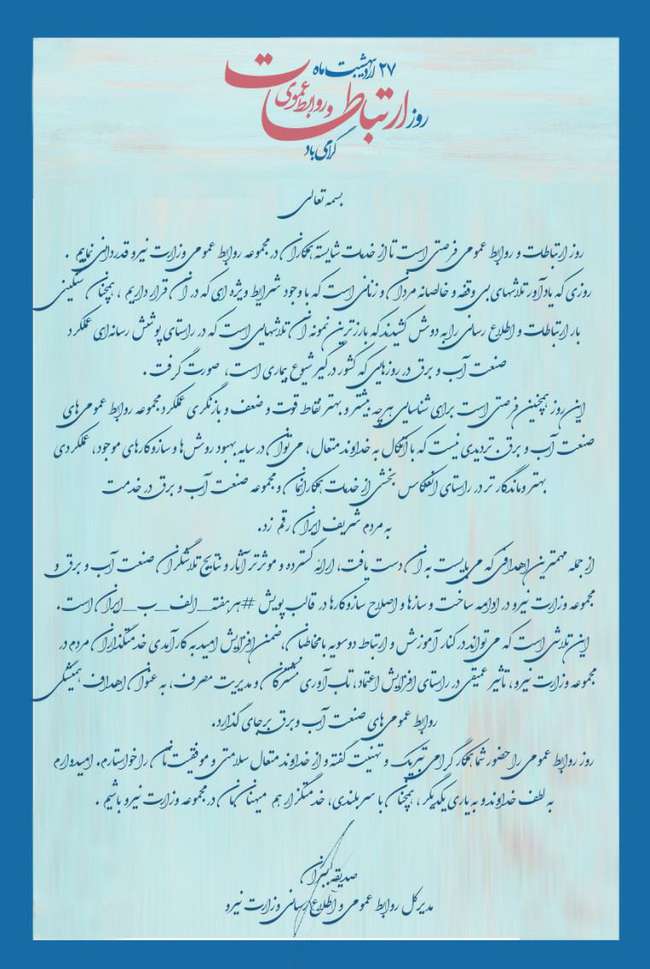 ۲۷ اردیبهشت ماه
روز ارتباطات
و روابط عمومی
گرامی باد
بسمه تعالی
روز ارتباطات و روابط عمومی فرصتی است تا از خدمات شایسته همکاران در مجموعه روابط عمومی وزارت نیرو قدردانی نماییم .
روزی که یادآور تلاشهای بی وقفه و خالصانه مردان و زنانی است که با وجود شرایط ویژه ای که در آن قرار داریم ، همچنان سنگینی
بار ارتباطات و اطلاع رسانی را به دوش کشیدند که بارزترین نمونه آن تلاشهایی است که در راستای پوشش رسانه‌ای عملکرد
صنعت آب و برق در روزهایی که کشور درگیر شیوع بیماری است، صورت گرفت .
این روز همچنین فرصتی است برای شناسایی هرچه بیشتر و بهتر نقاط قوت و ضعف و بازنگری عملکرد مجموعه روابط عمومی های
صنعت آب و برق. تردیدی نیست که با اتکال به خداوند متعال، می‌توان در سایه بهبود روش‌ها و سازوکارهای موجود، عملکردی
بهتر و ماندگارتر در راستای انعکاس بخشی از خدمات همکارانمان و مجموعه صنعت آب و برق در خدمت
به مردم شریف ایران رقم زد.
از جمله مهمترین اهدافی که می‌بایست به آن دست یافت، ارائه گسترده و موثرتر آثار و نتایج تلاشگران صنعت آب و برق و
مجموعه وزارت نیرو در ادامه ساخت و سازها و اصلاح سازوکارها در قالب پویش #هرهفته_الف_ب_ایران است.
این تلاشی است که می‌تواند در کنار آموزش و ارتباط دوسویه با مخاطبان، ضمن افزایش امید به کارآمدی خدمتگزاران مردم در
مجموعه وزارت نیرو، تاثیر عمیقی در راستای افزایش اعتماد، تاب آوری مشترکان و مدیریت مصرف، به عنوان اهداف همیشگی
روابط عمومی های صنعت آب و برق برجای گذارد.
روز روابط عمومی را حضور شما همکار گرامی تبریک و تهنیت گفته و از خداوند متعال سلامتی و موفقیت‌تان را خواستارم. امیدوارم
به لطف خداوند و به یاری یکدیگر، همچنان با سربلندی، خدمتگزار هم میهنان‌مان در مجموعه وزارت نیرو باشیم .
صدیقه ببران
مدیرکل روابط عمومی و اطلاع رسانی وزارت نیرو